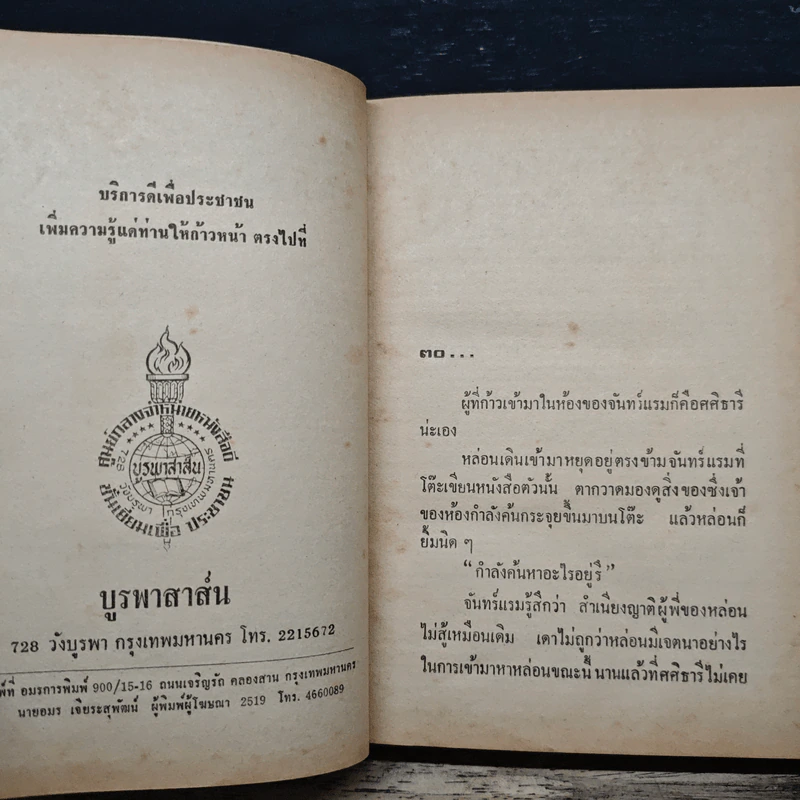 บริการดีเพื่อประชาชน
เพิ่มความรู้แด่ท่านให้ก้าวหน้า ตรงไปที่
ศูนย์กลางจำหน่ายหนังสือดี
บูรพาสาส์น
728 วังบูรพา กรุงเทพมหานคร
ชั้นเยี่ยมเพื่อ ประชาชน
บูรพาสาส์น
728 วังบูรพา กรุงเทพมหานคร โทร. 2215672
อมรการพิมพ์ 900/15-16 ถนนเจริญรัถ คลองสาน กรุงเทพมหานคร
นายอมร เจียระสุพัฒน์ ผู้พิมพ์ผู้โฆษณา 2519 โทร. 4660089
๓๐...
ผู้ที่ก้าวเข้ามาในห้องของจันทร์แรมก็คือศศิธารี
น่ะเอง
หล่อนเดินเข้ามาหยุดอยู่ตรงข้ามจันทร์แรมที่
โต๊ะเขียนหนังสือตัวนั้น ตากวาดมองดูสิ่งของซึ่งเจ้า
ของห้องกำลังค้นกระจุยขึ้นมาบนโต๊ะ แล้วหล่อนก็
ยิ้มนิด ๆ
“กำลังค้นหาอะไรอยู่รึ”
จันทร์แรมรู้สึกว่า สำเนียงญาติผู้พี่ของหล่อน
ไม่สู้เหมือนเดิม เดาไม่ถูกว่าหล่อนมีเจตนาอย่างไร
ในการเข้ามาหาหล่อนขณะนี้ นานแล้วที่ศศิธารีไม่เคย